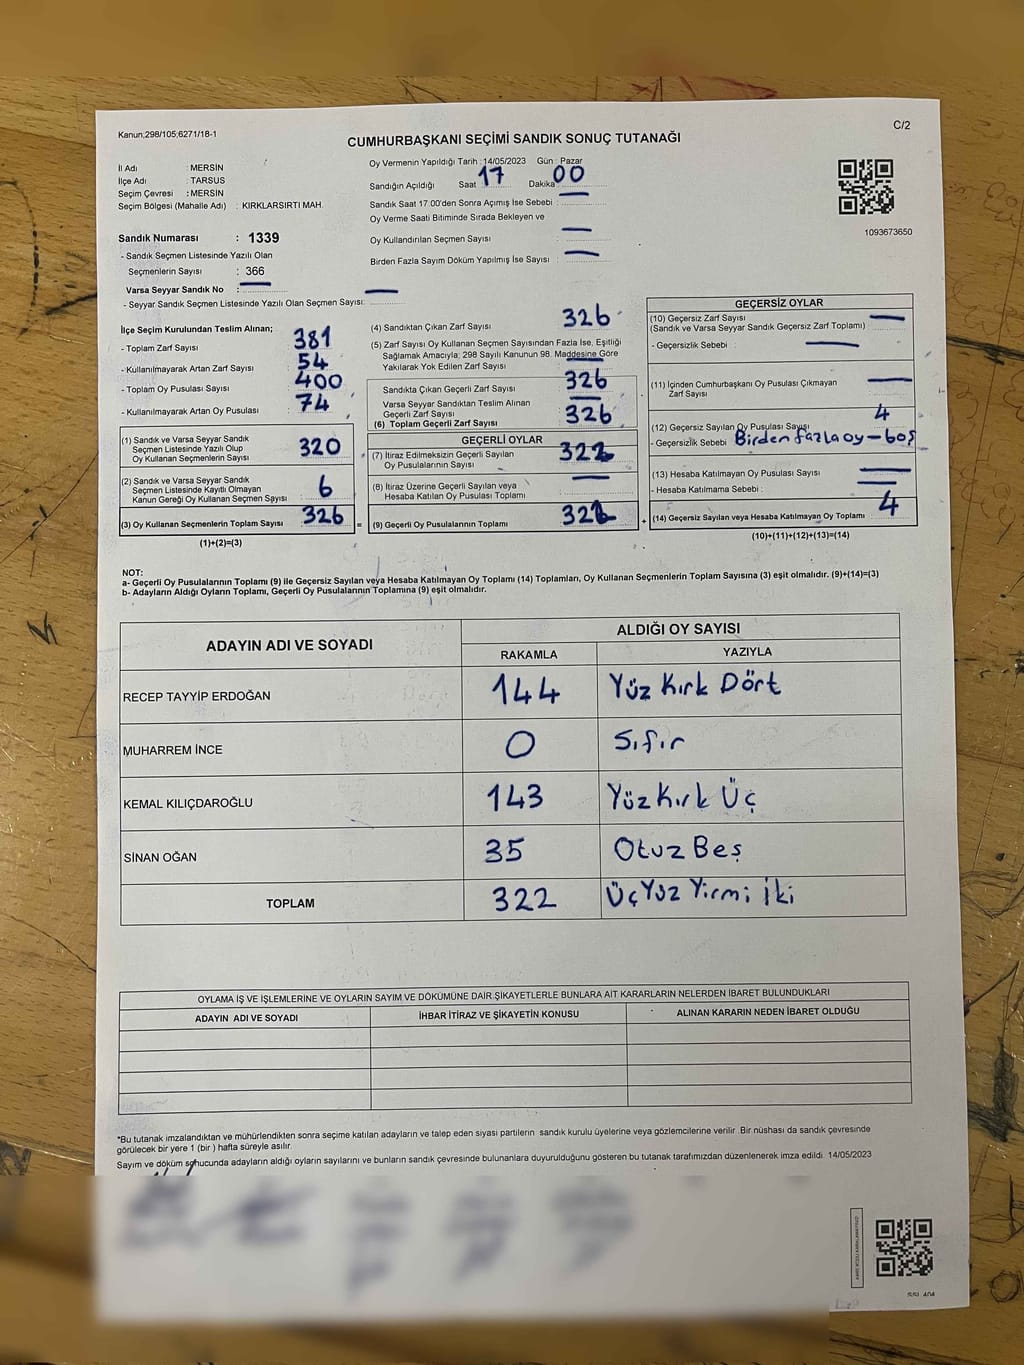 Kanun;298/105;6271/18-1
C/2
CUMHURBAŞKANI SEÇİMİ SANDIK SONUÇ TUTANAĞI
İl Adı : MERSİN
İlçe Adı : TARSUS
Seçim Çevresi : MERSİN
Seçim Bölgesi (Mahalle Adı) : KIRKLARSIRTI MAH.
Oy Vermenin Yapıldığı Tarih : 14/05/2023 Gün : Pazar
Sandığın Açıldığı Saat 17 Dakika 00
Sandık Saat 17:00'den Sonra Açımış İse Sebebi : —
Oy Verme Saati Bitiminde Sırada Bekleyen ve
Oy Kullandırılan Seçmen Sayısı —
Birden Fazla Sayım Döküm Yapılmış İse Sayısı : —
1093673650
Sandık Numarası : 1339
- Sandık Seçmen Listesinde Yazılı Olan
Seçmenlerin Sayısı : 366
Varsa Seyyar Sandık No : —
- Seyyar Sandık Seçmen Listesinde Yazılı Olan Seçmen Sayısı: —
İlçe Seçim Kurulundan Teslim Alınan;
- Toplam Zarf Sayısı : 381
- Kullanılmayarak Artan Zarf Sayısı : 54
- Toplam Oy Pusulası Sayısı : 400
- Kullanılmayarak Artan Oy Pusulası : 74
(1) Sandık ve Varsa Seyyar Sandık
Seçmen Listesinde Yazılı Olup
Oy Kullanan Seçmenlerin Sayısı 320
(2) Sandık ve Varsa Seyyar Sandık
Seçmen Listesinde Kayıtlı Olmayan
Kanun Gereği Oy Kullanan Seçmen Sayısı 6
(3) Oy Kullanan Seçmenlerin Toplam Sayısı 326
(1)+(2)=(3)
(4) Sandıktan Çıkan Zarf Sayısı 326
(5) Zarf Sayısı Oy Kullanan Seçmen Sayısından Fazla İse, Eşitliği
Sağlamak Amacıyla; 298 Sayılı Kanunun 98. Maddesine Göre
Yakılarak Yok Edilen Zarf Sayısı —
Sandıkta Çıkan Geçerli Zarf Sayısı 326
Varsa Seyyar Sandıktan Teslim Alınan
Geçerli Zarf Sayısı —
(6) Toplam Geçerli Zarf Sayısı 326
=
GEÇERLİ OYLAR
(7) İtiraz Edilmeksizin Geçerli Sayılan
Oy Pusulalarının Sayısı 322
(8) İtiraz Üzerine Geçerli Sayılan veya
Hesaba Katılan Oy Pusulası Toplamı —
(9) Geçerli Oy Pusulalarının Toplamı 322
+
GEÇERSİZ OYLAR
(10) Geçersiz Zarf Sayısı —
(Sandık ve Varsa Seyyar Sandık Geçersiz Zarf Toplamı)
- Geçersizlik Sebebi : —
(11) İçinden Cumhurbaşkanı Oy Pusulası Çıkmayan
Zarf Sayısı —
(12) Geçersiz Sayılan Oy Pusulası Sayısı 4
- Geçersizlik Sebebi Birden fazla oy – boş
(13) Hesaba Katılmayan Oy Pusulası Sayısı —
- Hesaba Katılmama Sebebi : —
(14) Geçersiz Sayılan veya Hesaba Katılmayan Oy Toplamı 4
(10)+(11)+(12)+(13)=(14)
NOT:
a- Geçerli Oy Pusulalarının Toplamı (9) ile Geçersiz Sayılan veya Hesaba Katılmayan Oy Toplamı (14) Toplamları, Oy Kullanan Seçmenlerin Toplam Sayısına (3) eşit olmalıdır. (9)+(14)=(3)
b- Adayların Aldığı Oyların Toplamı, Geçerli Oy Pusulalarının Toplamına (9) eşit olmalıdır.
ADAYIN ADI VE SOYADI
ALDIĞI OY SAYISI
RAKAMLA YAZIYLA
RECEP TAYYİP ERDOĞAN 144 Yüz Kırk Dört
MUHARREM İNCE 0 Sıfır
KEMAL KILIÇDAROĞLU 143 Yüz Kırk Üç
SİNAN OĞAN 35 Otuz Beş
TOPLAM 322 Üç Yüz Yirmi İki
OYLAMA İŞ VE İŞLEMLERİNE VE OYLARIN SAYIM VE DÖKÜMÜNE DAİR ŞİKAYETLERLE BUNLARA AİT KARARLARIN NELERDEN İBARET BULUNDUKLARI
ADAYIN ADI VE SOYADI İHBAR İTİRAZ VE ŞİKAYETİN KONUSU ALINAN KARARIN NEDEN İBARET OLDUĞU
*Bu tutanak imzalandıktan ve mühürlendikten sonra seçime katılan adayların ve talep eden siyasi partilerin sandık kurulu üyelerine veya gözlemcilerine verilir. Bir nüshası da sandık çevresinde
görülecek bir yere 1 (bir) hafta süreyle asılır.
Sayım ve döküm sonucunda adayların aldığı oyların sayılarını ve bunların sandık çevresinde bulunanlara duyurulduğunu gösteren bu tutanak tarafımızdan düzenlenerek imza edildi. 14/05/2023